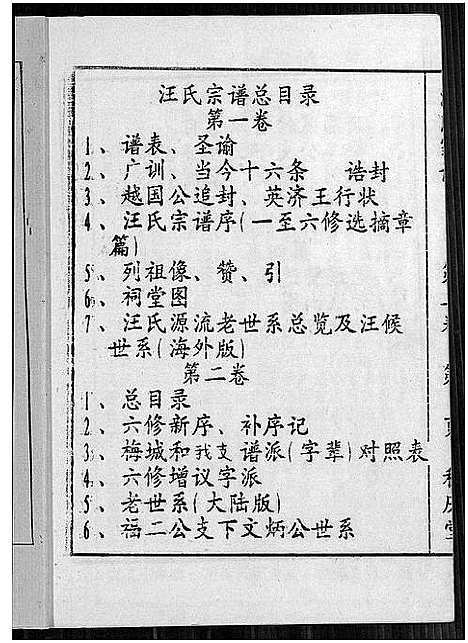 汪氏宗谱总目录
第一卷
1、谱表、圣谕
2、广训、当今十六条　诰封
3、越国公追封、英济王行状
4、汪氏宗谱序(一至六修选摘章
篇)
5、列祖像、赞、引
6、祠堂图
7、汪氏源流老世系总览及汪候
世系(海外版)
第二卷
1、总目录
2、六修新序、补序记
3、梅城和我支谱派(字辈)对照表
4、六修增议字派
5、老世系(大陆版)
6、福二公支下文炳公世系